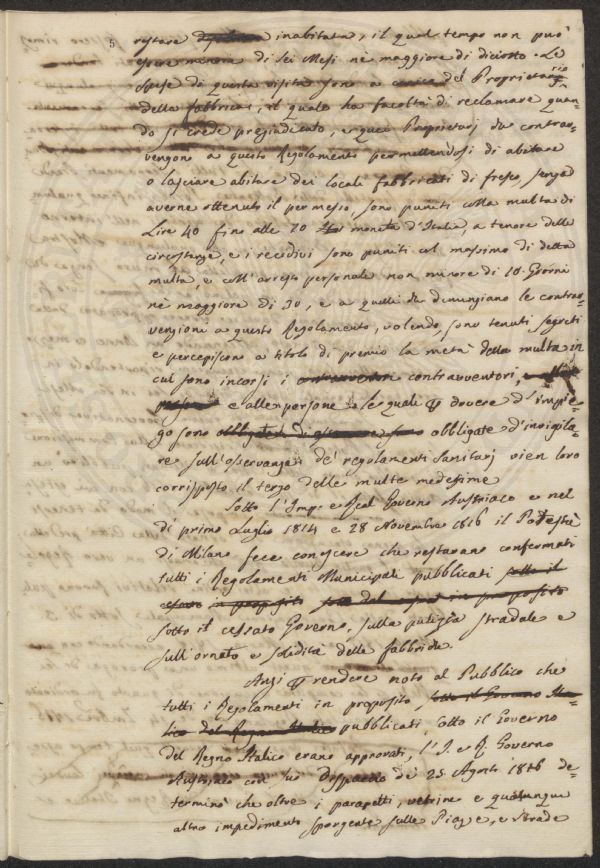 5
restare inabitata, il qual tempo non può
essere minore di sei Mesi nè maggiore di diciotto. Le
spese di questa visita sono a carico del Proprietario
della fabbrica, il quale ha facoltà di reclamare quan=
do si crede pregiudicato, e quei Proprietarj che contrav=
vengono a questo Regolamento permettendosi di abitare
o lasciare abitare dei locali fabbricati di fresco, senza
averne ottenuto il permesso, sono puniti colla multa di
Lire 40 fino alle 70 moneta d'Italia, a tenore delle
circostanze, e i recidivi sono puniti col massimo di detta
multa, e coll'arresto personale non minore di 10 Giorni
nè maggiore di 30, e a quelli che dinunziano le contrav=
venzioni a questo Regolamento, volendo, sono tenuti segreti
e percepiscono a titolo di premio la metà della multa in
cui sono incorsi i contravventori contravventori,
e alle persone le quali p dovere d'impie=
go sono obbligate d'invigila=
re sull'osservanza de' regolamenti sanitarj vien loro
corrisposto il terzo delle multe medesime
Sotto l'Imp. e Real Governo Austriaco e nel
dì primo Luglio 1814 e 28 Novembre 1816 il Podestà
di Milano fece conoscere che restavano confermati
tutti i Regolamenti Municipali pubblicati sotto il
cessato in proposito in proposito
sotto il cessato Governo, sulla pulizia stradale e
sull'ornato e solidità delle fabbriche.
Anzi p rendere noto al Pubblico che
tutti i Regolamenti in proposito, sotto il Governo Ita=
lico del Regno Italico pubblicati, sotto il Governo
del Regno Italico erano approvati, l'I. e R. Governo
Austriaco con suo Dispaccio de' 25 Agosto 1816 de=
terminò che oltre i parapetti, vetrine e qualunque
altro impedimento sporgente sulle Piazze, e strade